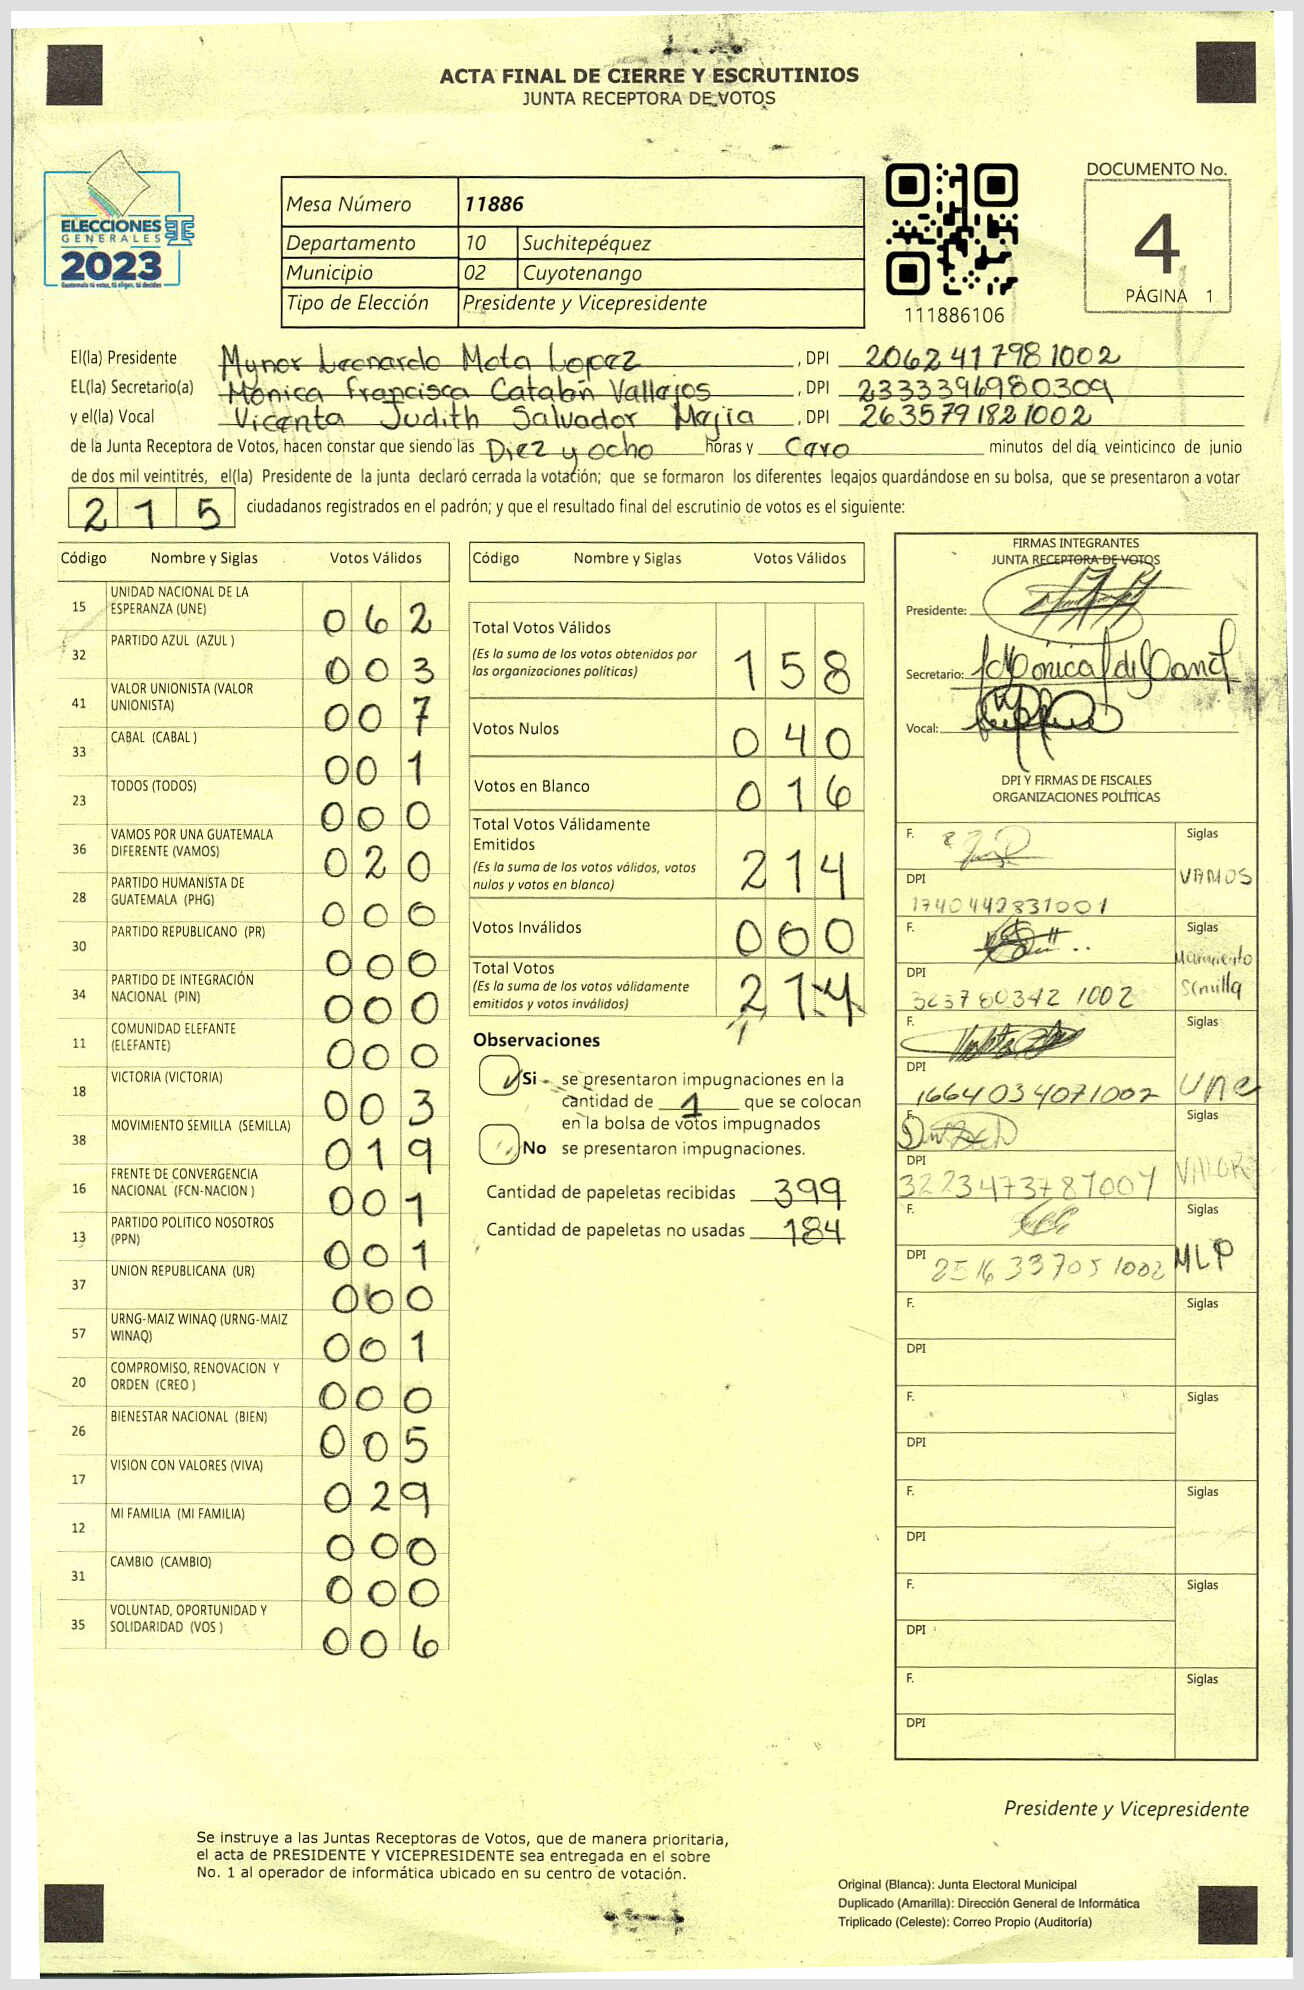 ACTA FINAL DE CIERRE Y ESCRUTINIOS
JUNTA RECEPTORA DE VOTOS
ELECCIONES
GENERALES
2023
Guatemala tú votas, tú eliges, tú decides
Mesa Número 11886
Departamento 10 Suchitepéquez
Municipio 02 Cuyotenango
Tipo de Elección Presidente y Vicepresidente
111886106
DOCUMENTO No.
4
PÁGINA 1
El(la) Presidente Mynor Leonardo Mota Lopez, DPI 2062417981002
EL(la) Secretario(a) Mónica Francisca Catalán Vallejos, DPI 2333396980309
y el(la) Vocal Vicenta Judith Salvador Mejia, DPI 2635791821002
de la Junta Receptora de Votos, hacen constar que siendo las Diez y ocho horas y Cero minutos del día veinticinco de junio
de dos mil veintitrés, el(la) Presidente de la junta declaró cerrada la votación; que se formaron los diferentes legajos guardándose en su bolsa, que se presentaron a votar
215 ciudadanos registrados en el padrón; y que el resultado final del escrutinio de votos es el siguiente:
Código Nombre y Siglas Votos Válidos
15 UNIDAD NACIONAL DE LA ESPERANZA (UNE) 062
32 PARTIDO AZUL (AZUL ) 003
41 VALOR UNIONISTA (VALOR UNIONISTA) 007
33 CABAL (CABAL ) 001
23 TODOS (TODOS) 000
36 VAMOS POR UNA GUATEMALA DIFERENTE (VAMOS) 020
28 PARTIDO HUMANISTA DE GUATEMALA (PHG) 000
30 PARTIDO REPUBLICANO (PR) 000
34 PARTIDO DE INTEGRACIÓN NACIONAL (PIN) 000
11 COMUNIDAD ELEFANTE (ELEFANTE) 000
18 VICTORIA (VICTORIA) 003
38 MOVIMIENTO SEMILLA (SEMILLA) 019
16 FRENTE DE CONVERGENCIA NACIONAL (FCN-NACION ) 001
13 PARTIDO POLITICO NOSOTROS (PPN) 001
37 UNION REPUBLICANA (UR) 000
57 URNG-MAIZ WINAQ (URNG-MAIZ WINAQ) 001
20 COMPROMISO, RENOVACION Y ORDEN (CREO ) 000
26 BIENESTAR NACIONAL (BIEN) 005
17 VISION CON VALORES (VIVA) 029
12 MI FAMILIA (MI FAMILIA) 000
31 CAMBIO (CAMBIO) 000
35 VOLUNTAD, OPORTUNIDAD Y SOLIDARIDAD (VOS ) 006
Código Nombre y Siglas Votos Válidos
Total Votos Válidos 158
(Es la suma de los votos obtenidos por
las organizaciones políticas)
Votos Nulos 040
Votos en Blanco 016
Total Votos Válidamente
Emitidos 214
(Es la suma de los votos válidos, votos
nulos y votos en blanco)
Votos Inválidos 000
Total Votos 214
(Es la suma de los votos válidamente
emitidos y votos inválidos)
Observaciones
Si se presentaron impugnaciones en la
cantidad de 1 que se colocan
en la bolsa de votos impugnados
No se presentaron impugnaciones.
Cantidad de papeletas recibidas 399
Cantidad de papeletas no usadas 184
FIRMAS INTEGRANTES
JUNTA RECEPTORA DE VOTOS
Presidente:
Secretario:
Vocal:
DPI Y FIRMAS DE FISCALES
ORGANIZACIONES POLÍTICAS
F. Siglas
DPI VAMOS
1740442831001
F. Siglas
Movimiento
DPI Semilla
323780342 1002
F. Siglas
DPI
1664034071002 UNE
F. Siglas
DPI VALOR
3223473787007
F. Siglas
DPI 2516337051002 MLP
F. Siglas
DPI
F. Siglas
DPI
F. Siglas
DPI
F. Siglas
DPI
F. Siglas
DPI
Presidente y Vicepresidente
Se instruye a las Juntas Receptoras de Votos, que de manera prioritaria,
el acta de PRESIDENTE Y VICEPRESIDENTE sea entregada en el sobre
No. 1 al operador de informática ubicado en su centro de votación.
Original (Blanca): Junta Electoral Municipal
Duplicado (Amarilla): Dirección General de Informática
Triplicado (Celeste): Correo Propio (Auditoría)